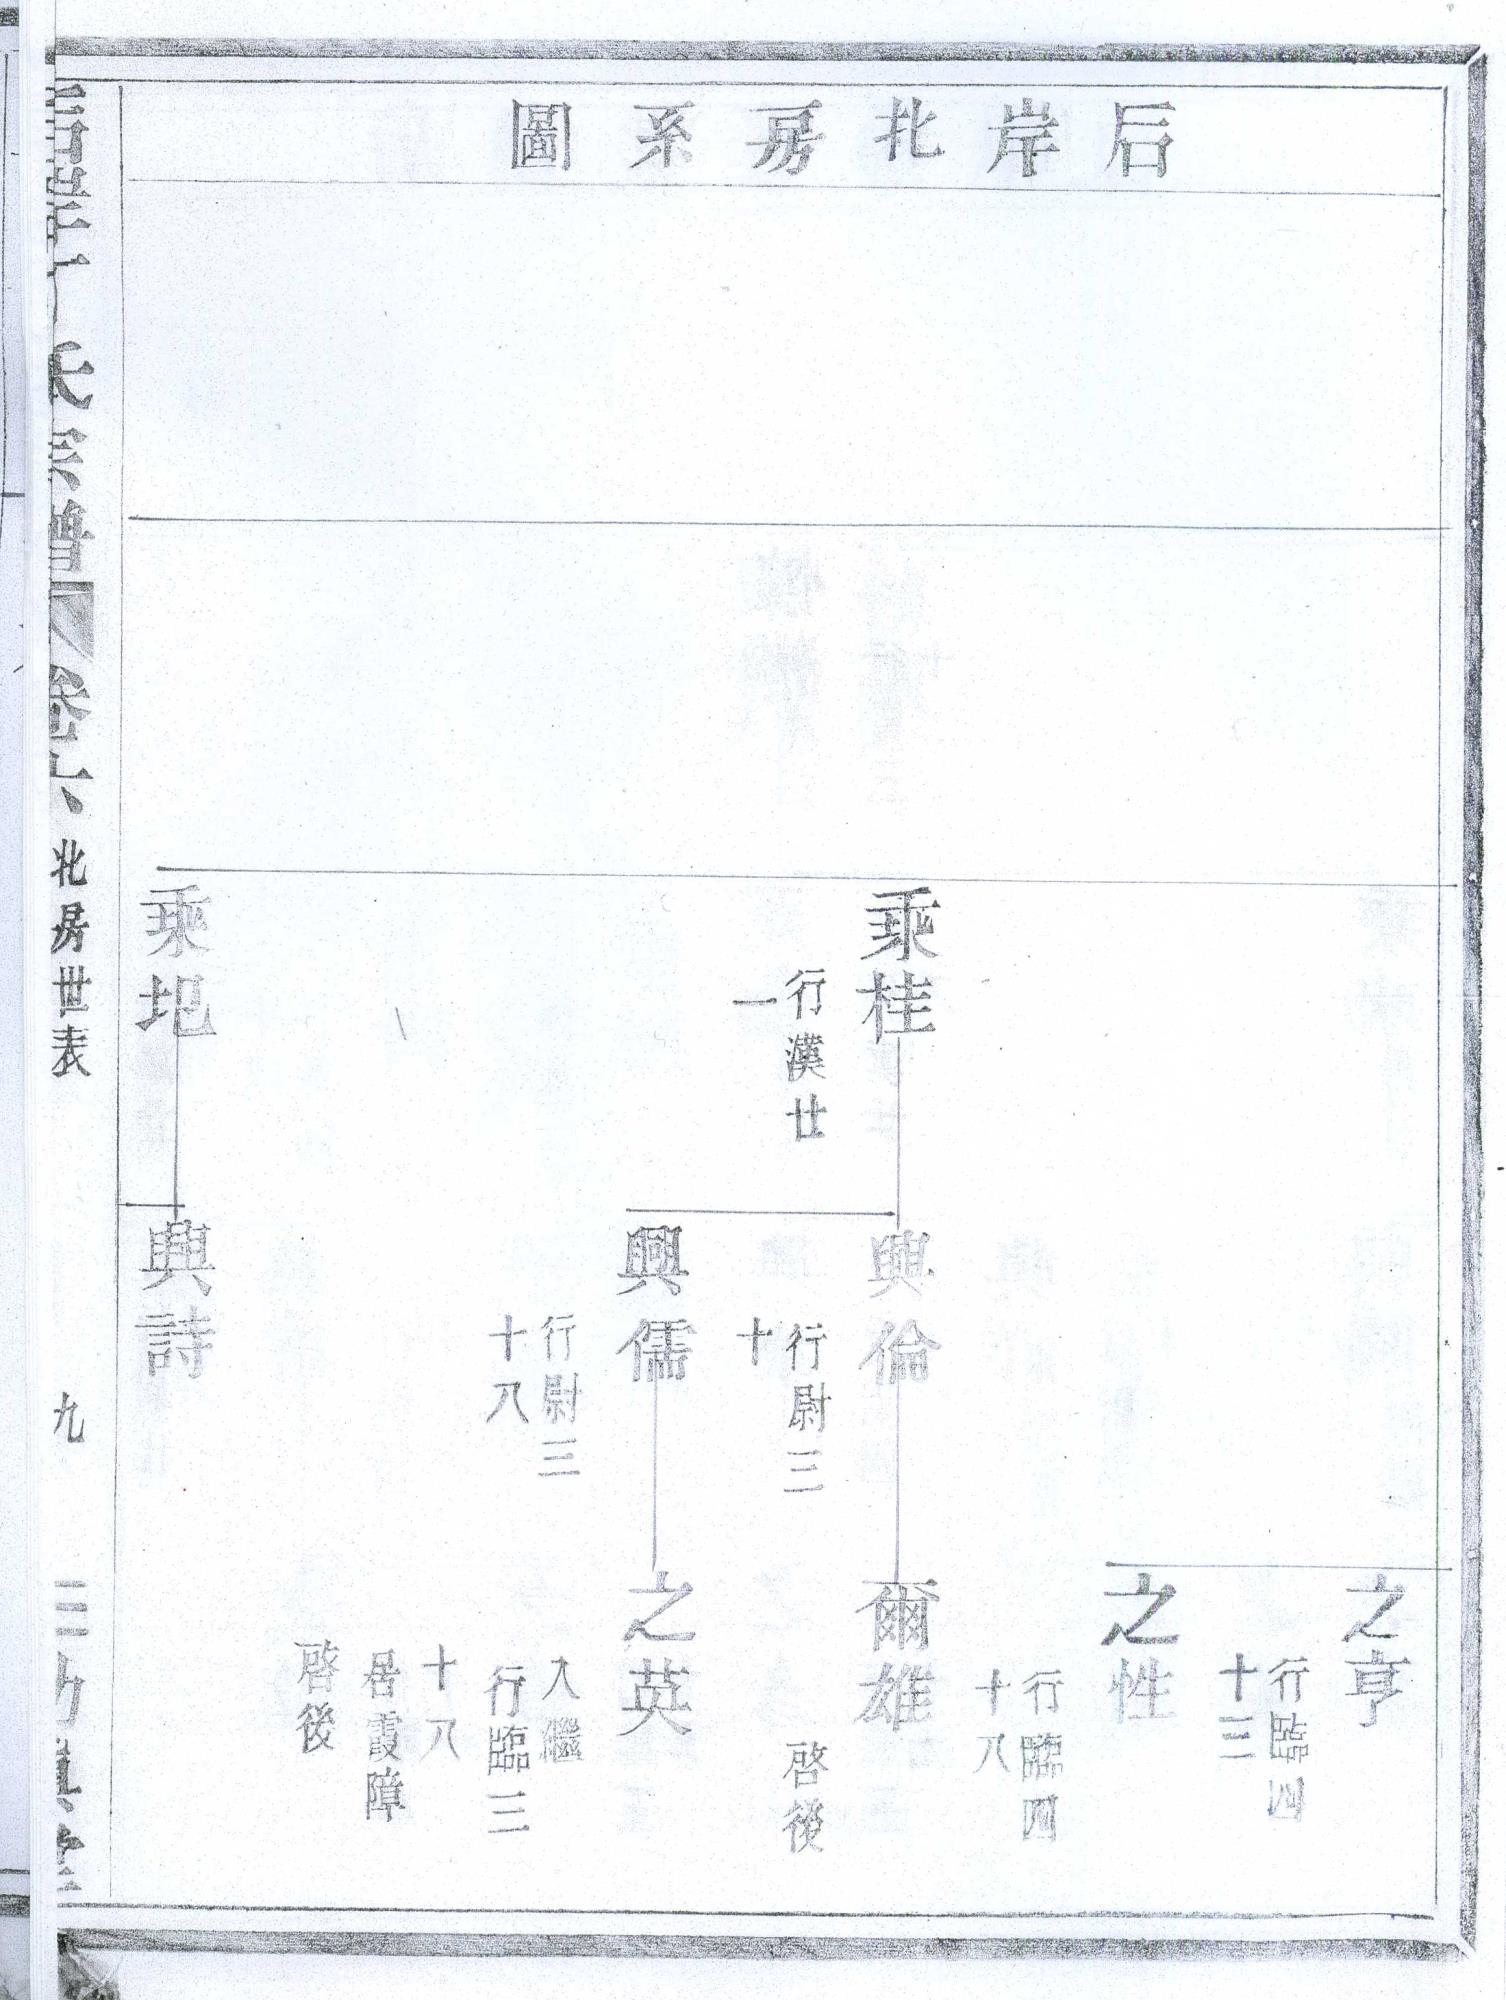 后岸北房系圖
之亨
行臨四
十三
之性
行臨四
十八
乘桂
行漢廿
一
興倫
行尉三
十
爾雄
啓後
興儒
行尉三
十八
之英
入繼
行臨三
十八
居霞障
啓後
乘圯
興詩
氏宗譜 卷六 北房世表 九